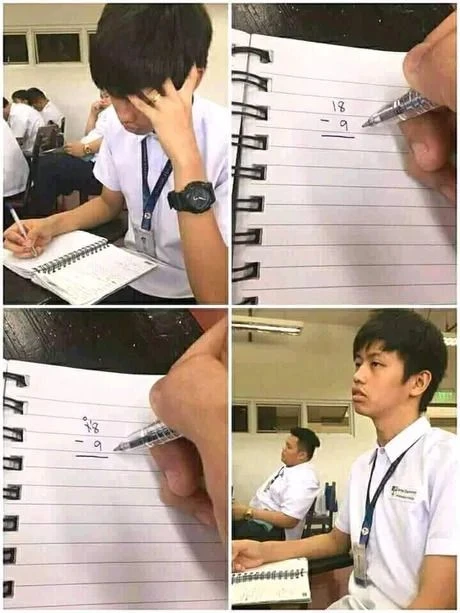 18
- 9
0
18
- 9